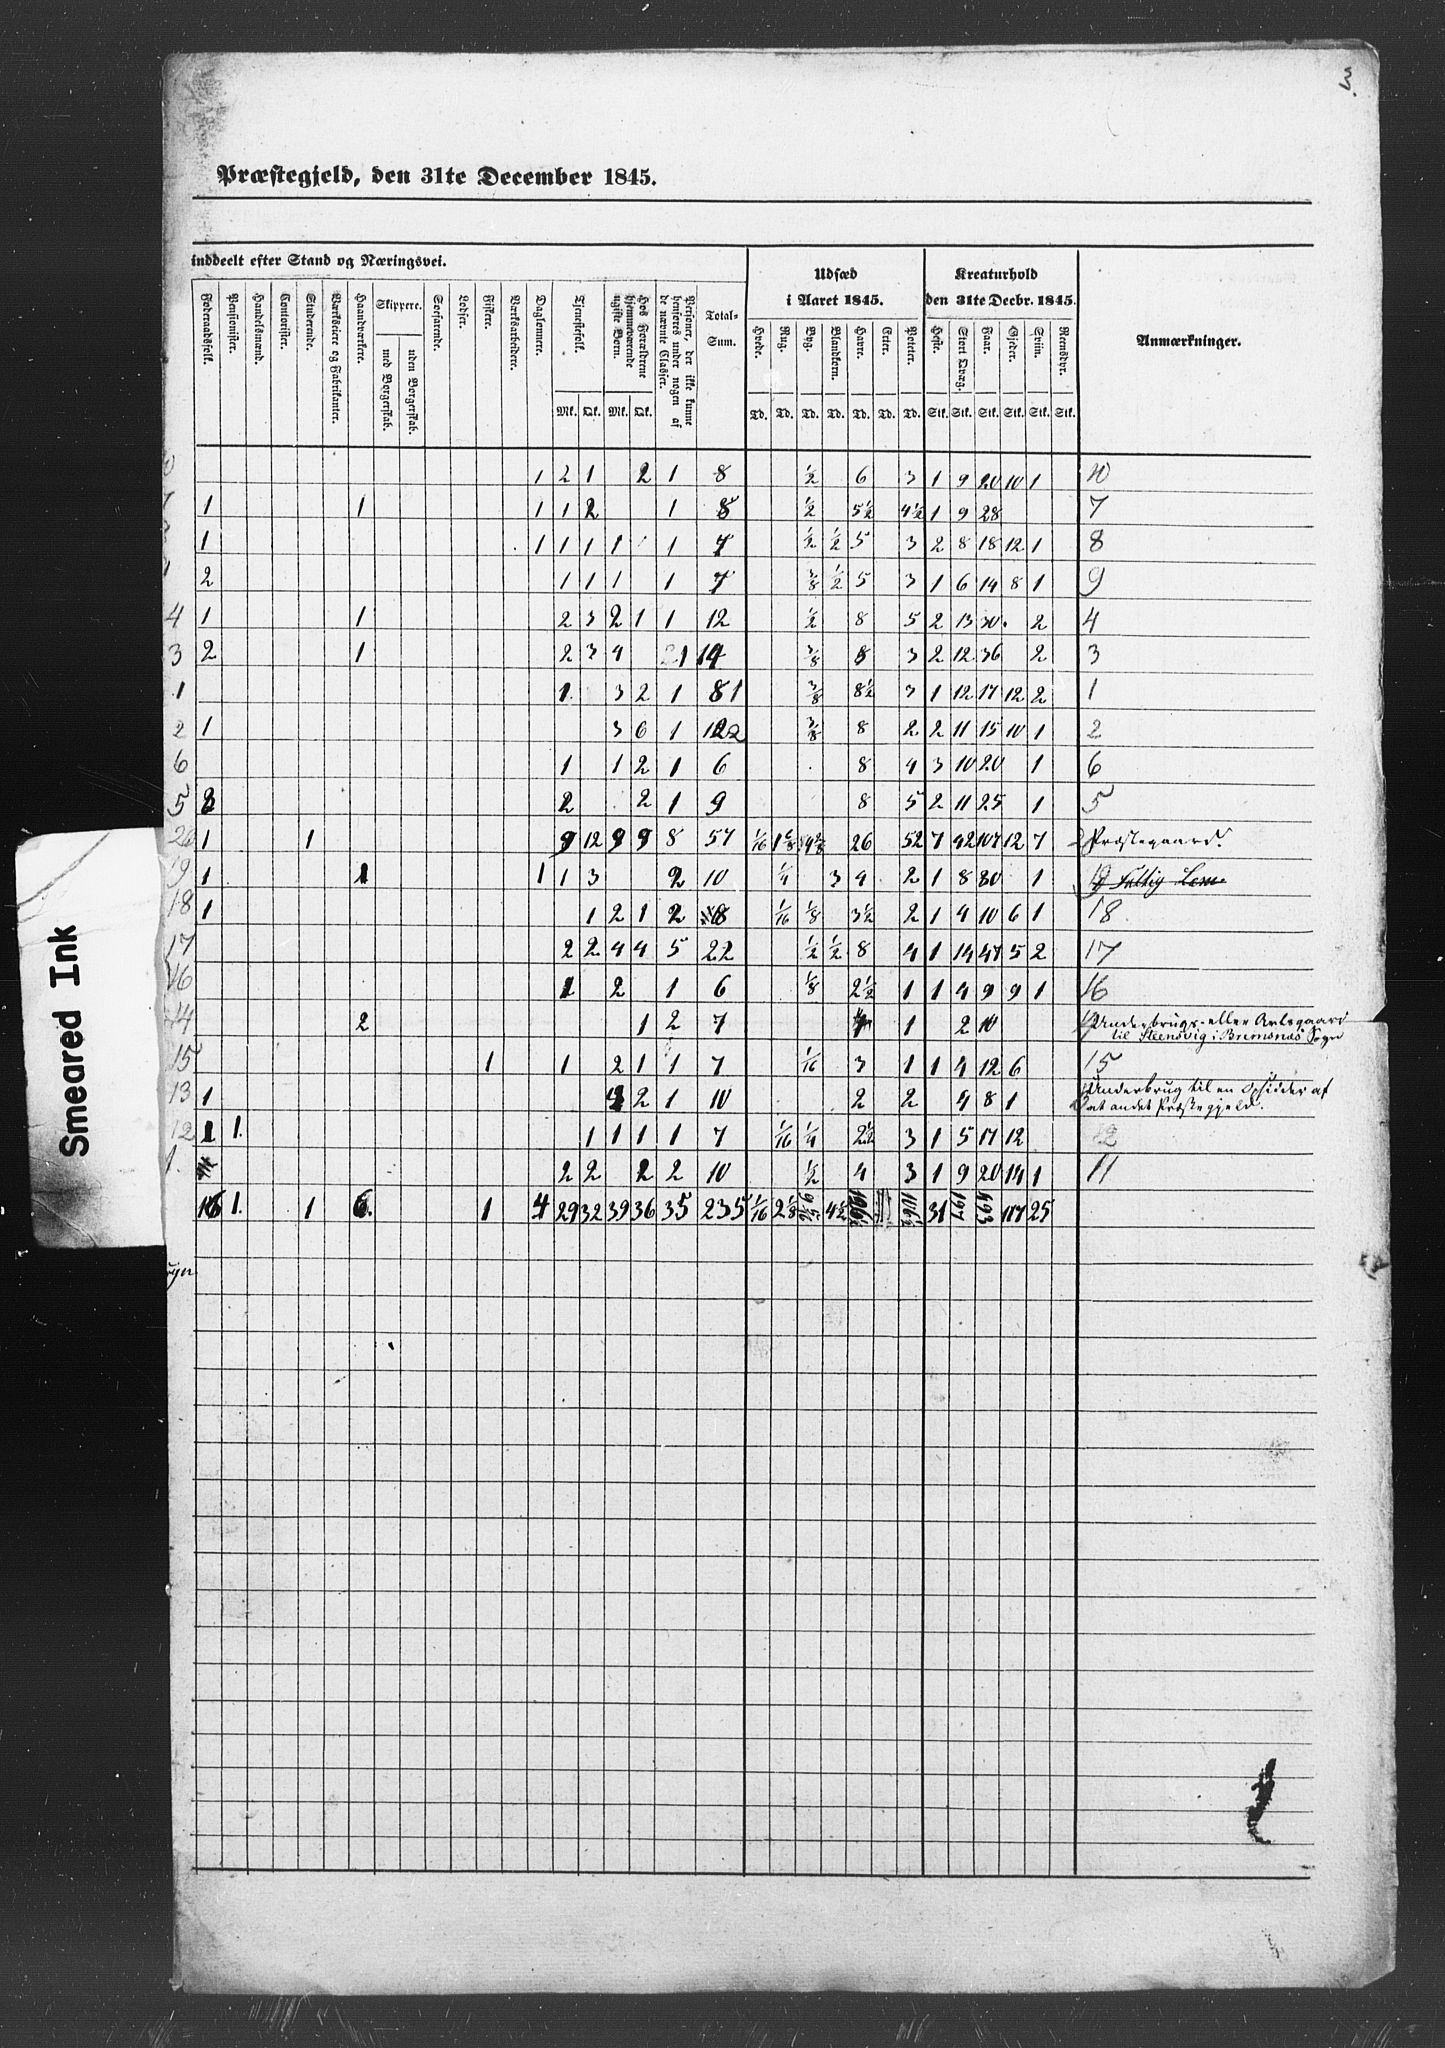 3.
Præstegjeld, den 31te December 1845.
inddeelt efter Stand og Næringsvei.
Udsæd
i Aaret 1845.
Kreaturhold
den 31te Decbr. 1845.
Anmærkninger.
Føderaadsfolk.
Pensionister.
Handelsmænd.
Contorister.
Studerende.
Værkseiere og Fabrikanter.
Haandværkere.
Skippere.
med Borgerskab.
uden Borgerskab.
Søefarende.
Lodser.
Fiskere.
Værksarbeidere.
Daglønnere.
Tjenestefolk.
Hos Forældrene hjemmeværende ugifte Børn.
Personer, der ikke kunne henføres under nogen af de nævnte Classer.
Total-
Sum.
Hvede. Rug. Byg. Blandkorn. Havre. Erter. Poteter. Heste. Stort Qvæg. Faar. Gjeder. Sviin. Reensdyr.
Mk. Qk. Mk. Qk.
Td. Td. Td. Td. Td. Td. Td. Stk. Stk. Stk. Stk. Stk. Stk.
1 2 1 2 1 8 ½ 6 3 1 9 20 10 1 10
7 1 1 1 1 2 1 8 ½ 5½ 4½ 1 9 28 7
1 1 1 1 1 1 1 7 ½ ½ 5 3 2 8 18 12 1 8
2 1 1 1 1 7 3/8 ½ 5 3 1 6 14 8 1 9
4 1 1 2 3 2 1 1 12 ½ 8 5 2 13 30 2 4
3 2 1 2 3 4 1 14 3/8 8 3 2 12 36 2 3
1 1 3 2 1 8 3/8 8½ 3 1 12 17 12 2 1
2 1 3 6 1 12 3/8 8 2 2 11 15 10 1 2
6 1 1 2 1 6 8 4 3 10 20 1 6
5 3 2 2 1 9 8 5 2 11 25 1 5
20 1 1 9 12 9 9 8 57 1/16 1 26 52 7 42 107 12 7 Præstegaard.
19 1 1 1 1 3 2 10 ¼ 3 4 2 1 8 30 1 19 Fattig Lem
18 1 1 2 1 2 8 1/16 1/8 3½ 2 1 4 10 6 1 18.
17 2 2 4 4 5 22 ½ ½ 8 4 1 14 47 5 2 17
16 1 2 1 6 1/8 2½ 1 1 4 9 9 1 16
14 2 1 2 7 1 2 10 Underbrugs- eller Avlsgaard
til Steensvig i Bremsnæs Sogn
15 1 1 2 1 1 7 1/16 3 1 1 4 12 6 15
13 1 2 1 10 2 2 4 8 1 Underbrug til en Opsidder af
et andet Præstegjeld.
12 1 1. 1 1 1 1 7 1/16 ¼ 2½ 3 1 5 17 12 12
2 2 2 2 10 ½ 4 3 1 9 20 14 1 11
16 1. 1 6. 1 4 29 32 39 36 35 235 1/16 2 1/8 9 5/16 4½ 31 197 493 117 25
Smeared Ink